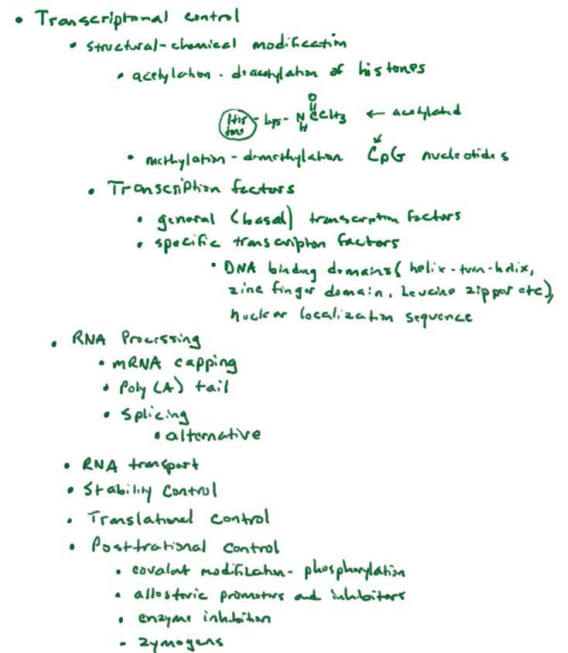 • Transcriptional control
• structural-chemical modification
• acetylation - deacetylation of histones
O
Histone - Lys - N C CH3 ← acetylated
H
• methylation - demethylation CpG nucleotides
• Transcription factors
• general (basal) transcription factors
• specific transcription factors
• DNA binding domains (helix-turn-helix,
zinc finger domain, Leucine zipper etc),
nuclear localization sequence
• RNA Processing
• mRNA capping
• Poly (A) tail
• Splicing
• alternative
• RNA transport
• Stability Control
• Translational control
• Posttrational Control
• covalent modification - phosphorylation
• allosteric promoters and inhibitors
• enzyme inhibition
• Zymogens